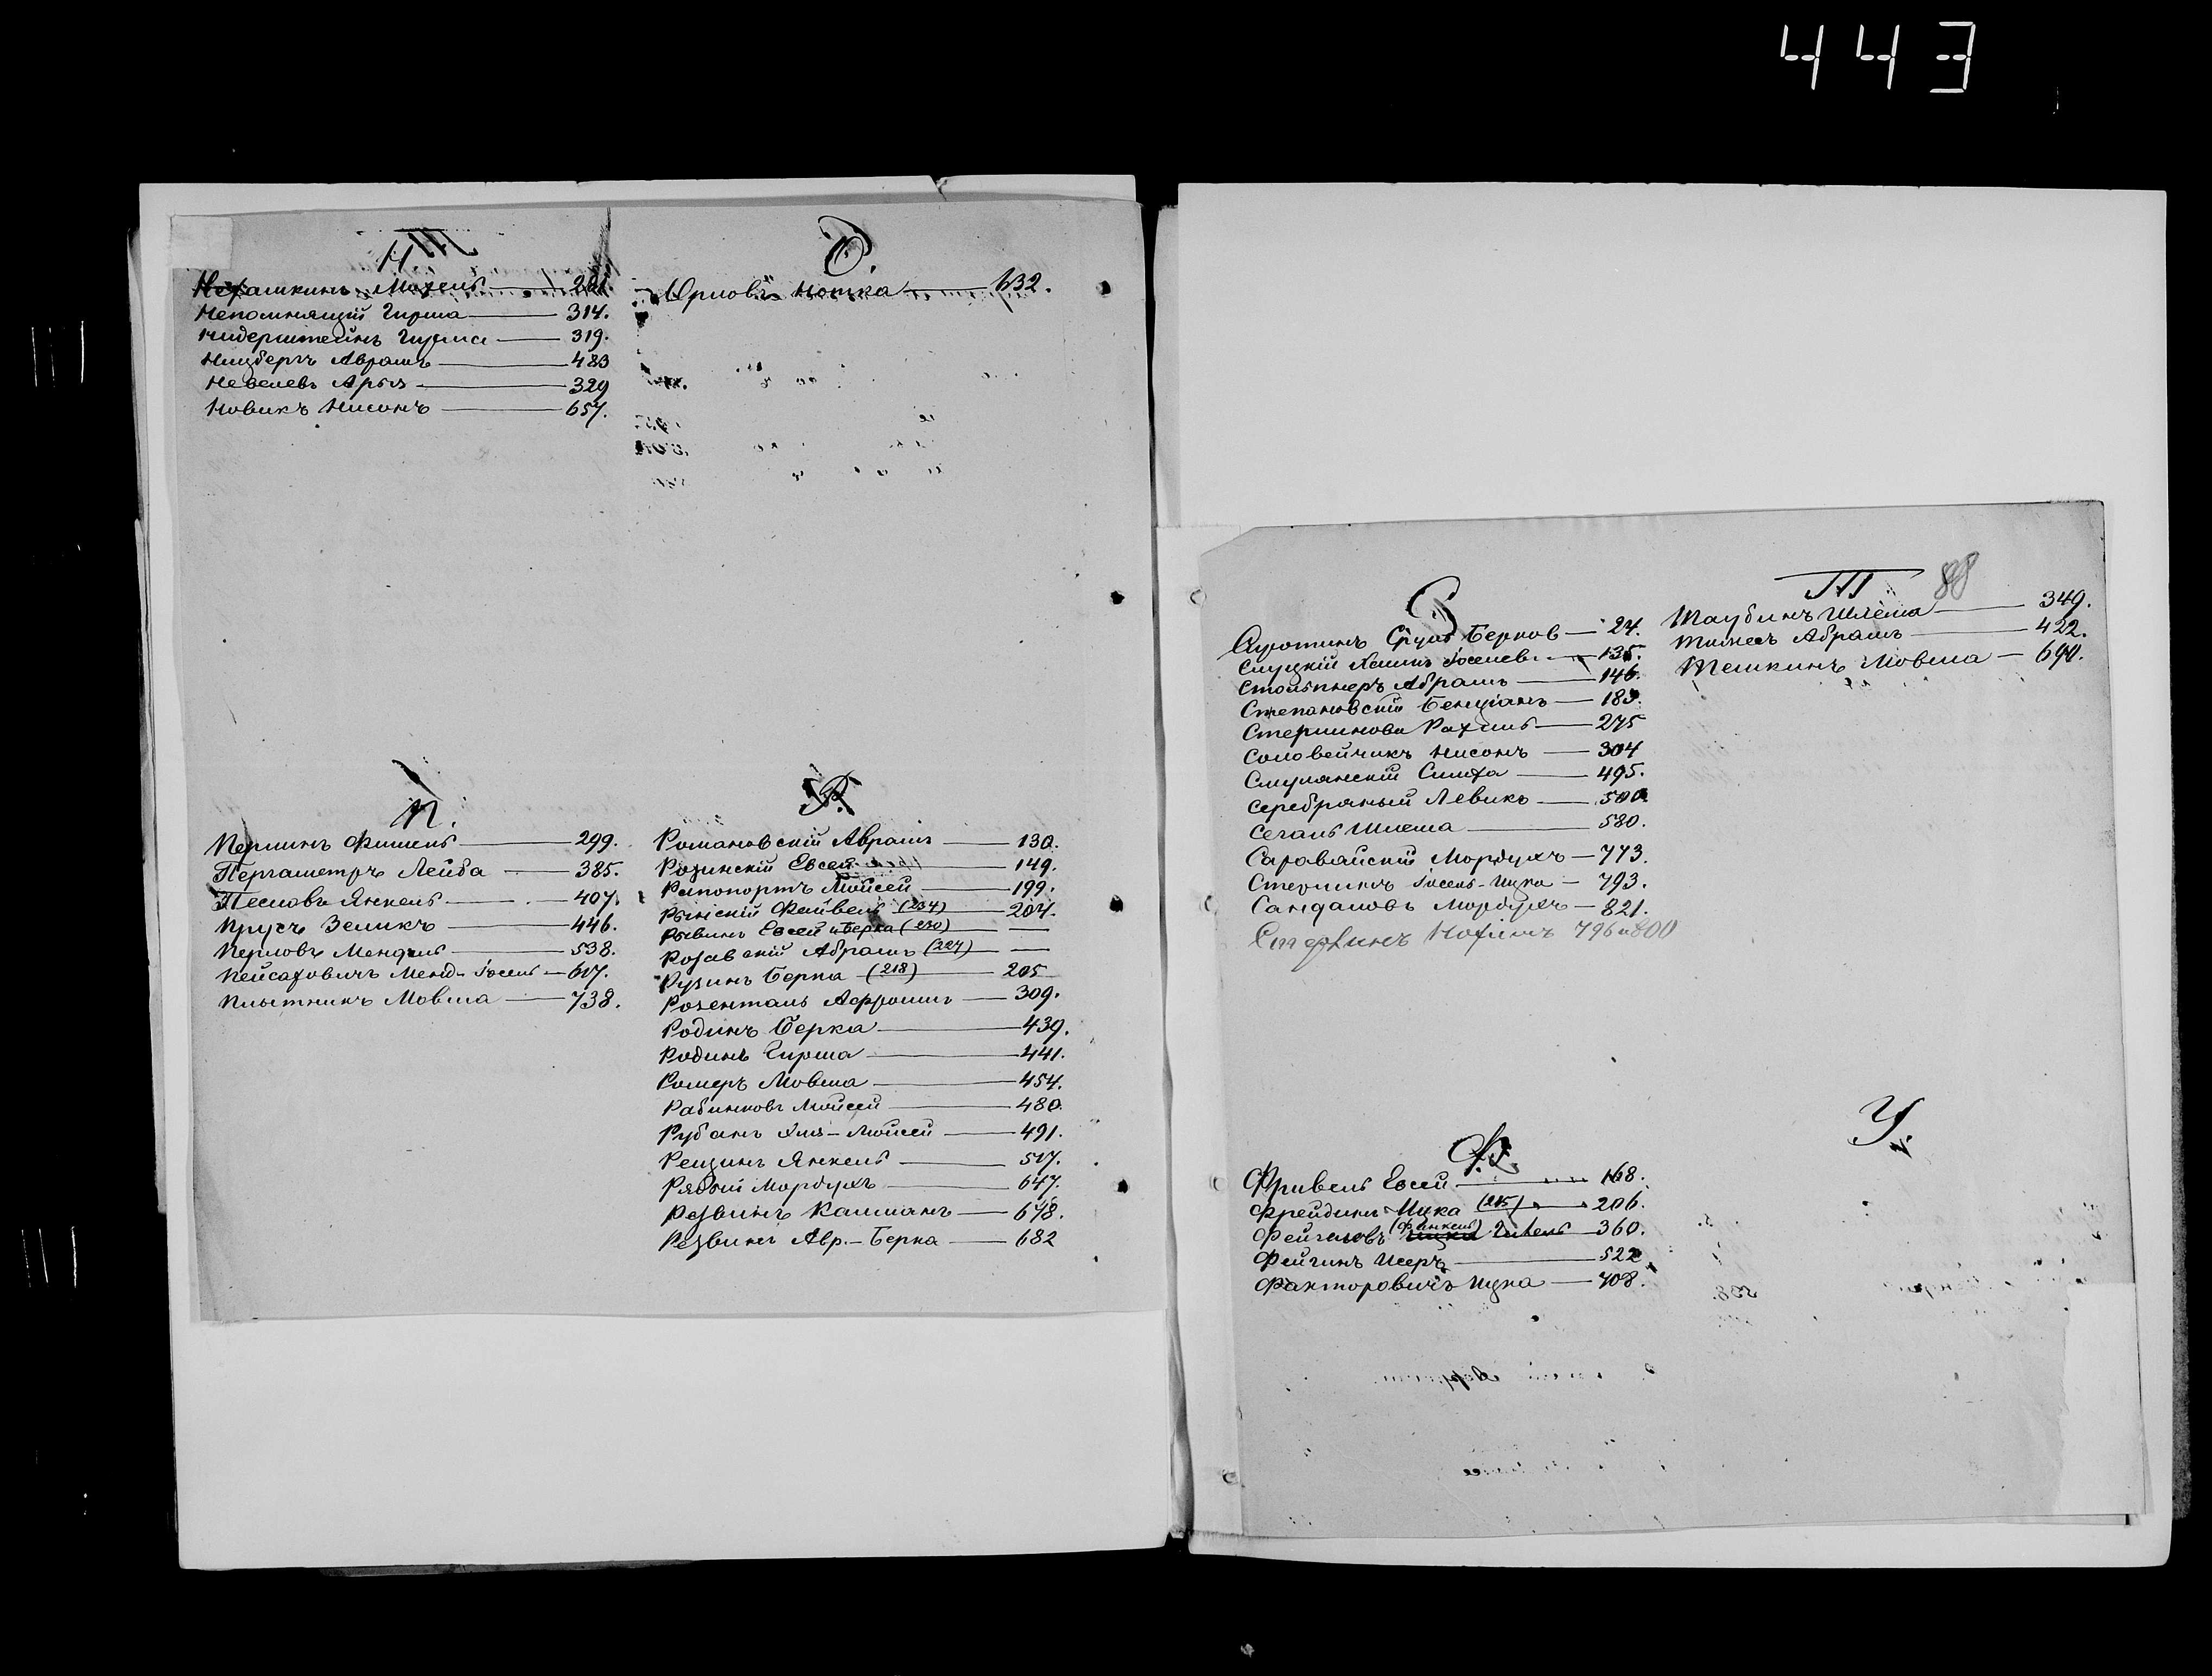 443
Н.
Нехамкинъ Михель 261.
Непомнящій Гирша 314.
Нидерштейнъ Гирша 319.
Ницбергъ Аврамъ 483
Невелевъ Арья 329
Новикъ Нисонъ 657.
О.
Орловъ Нотка 632.
П.
Перлинъ Фишель 299.
Пергаметръ Лейба 385.
Песловъ Янкель 407.
Прусъ Зеликъ 446.
Перловъ Мендель 538.
Пейсаховичъ Менд-Іосель 617.
Плытникъ Мовша 738.
Р.
Романовскій Аврамъ 130.
Розинскій Евсей 149.
Рапопортъ Мойсей 199.
Рынскій Файвель (234) 204.
Рывинъ Евсей и Берка (230)
Абрамъ (227)
Рузинъ Берка (218) 205
Розенталь Афроимъ 309.
Родинъ Берка 439.
Родинъ Гирша 441.
Ромеръ Мовша 454.
Рабинковъ Мойсей 480.
Рубанъ Эля-Мойсей 491.
Рещинъ Янкель 517.
Рябый Мордухъ 647.
Резвинъ Калманъ 678.
Резвинъ Авр.-Берка 682
88
С
Сиротинъ Сруль Берков 24.
Слуцкій Хаимъ Іоселев. 135.
Стольпнеръ Абрамъ 146.
Степановскій Бенціанъ 183.
Стерлинова Рахиль 275
Соловейчикъ Нисонъ 304
Смулянскій Симха 495.
Серебряный Левикъ 500
Сегаль Шлема 580.
Саравайскій Мордухъ 773.
Стерлинъ Іосель-Ицка 793.
Сандаловъ Мордухъ 821.
Стерлинъ Нохимъ 796 и 800
Т
Таубинъ Шлёма 349.
Тылесъ Абрамъ 422.
Темкинъ Мовша 690.
Ф.
Фривель Евсей 168.
Фрейдинъ Ицка (215) 206.
Фейгиловъ (Финкель) Ицка 360.
Фейгинъ Исеръ 522
Факторовичъ Ицка 708.
У.